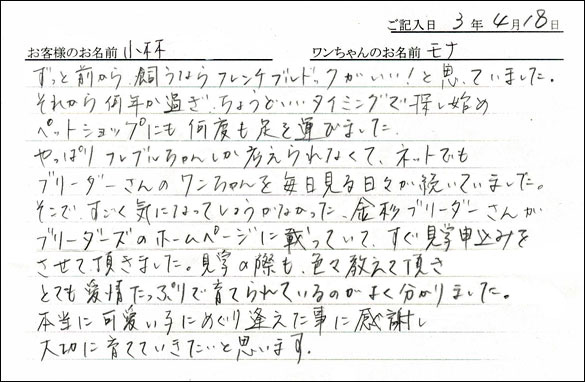 ご記入日 3年4月18日
お客様のお名前 小林 ワンちゃんのお名前 モナ
ずっと前から、飼うならフレンチブルドックがいい!と思っていました。
それから何年か過ぎ、ちょうどいいタイミングで探し始め
ペットショップにも何度も足を運びました。
やっぱりフレブルちゃんしか考えられなくて、ネットでも
ブリーダーさんのワンちゃんを毎日見る日々が続いていました。
そこで、すごく気になってしょうがなかった、金杉ブリーダーさんが
ブリーダーズのホームページに載っていて、すぐ見学申込みを
させて頂きました。見学の際も、色々教えて頂き
とても愛情たっぷりで育てられているのがよく分かりました。
本当に可愛い子にめぐり逢えた事に感謝し
大切に育てていきたいと思います。